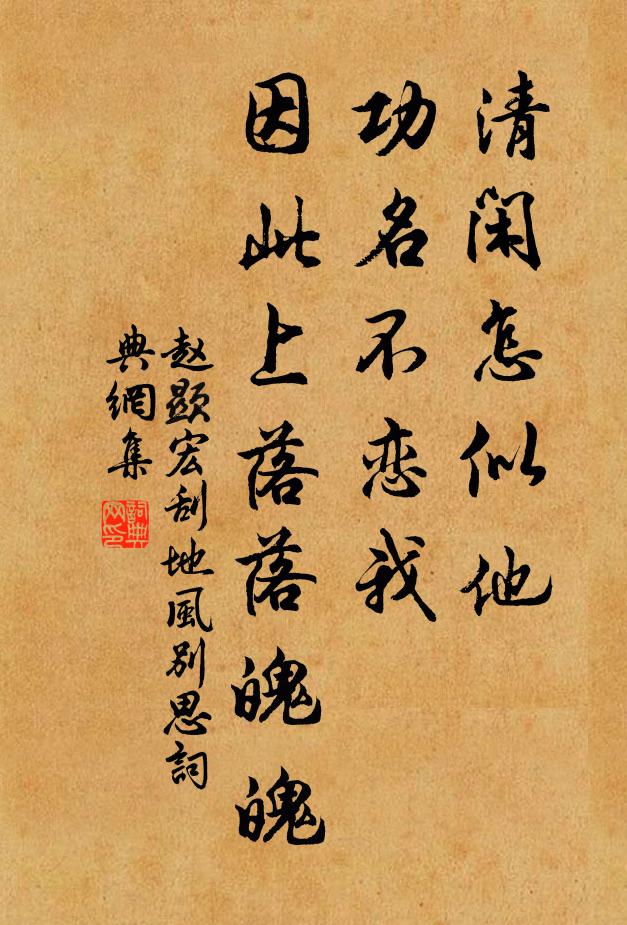 清闲怎似他
功名不恋我
因此上落落魄魄
赵显宏刮地風别思詞
典網集
詞典
网印